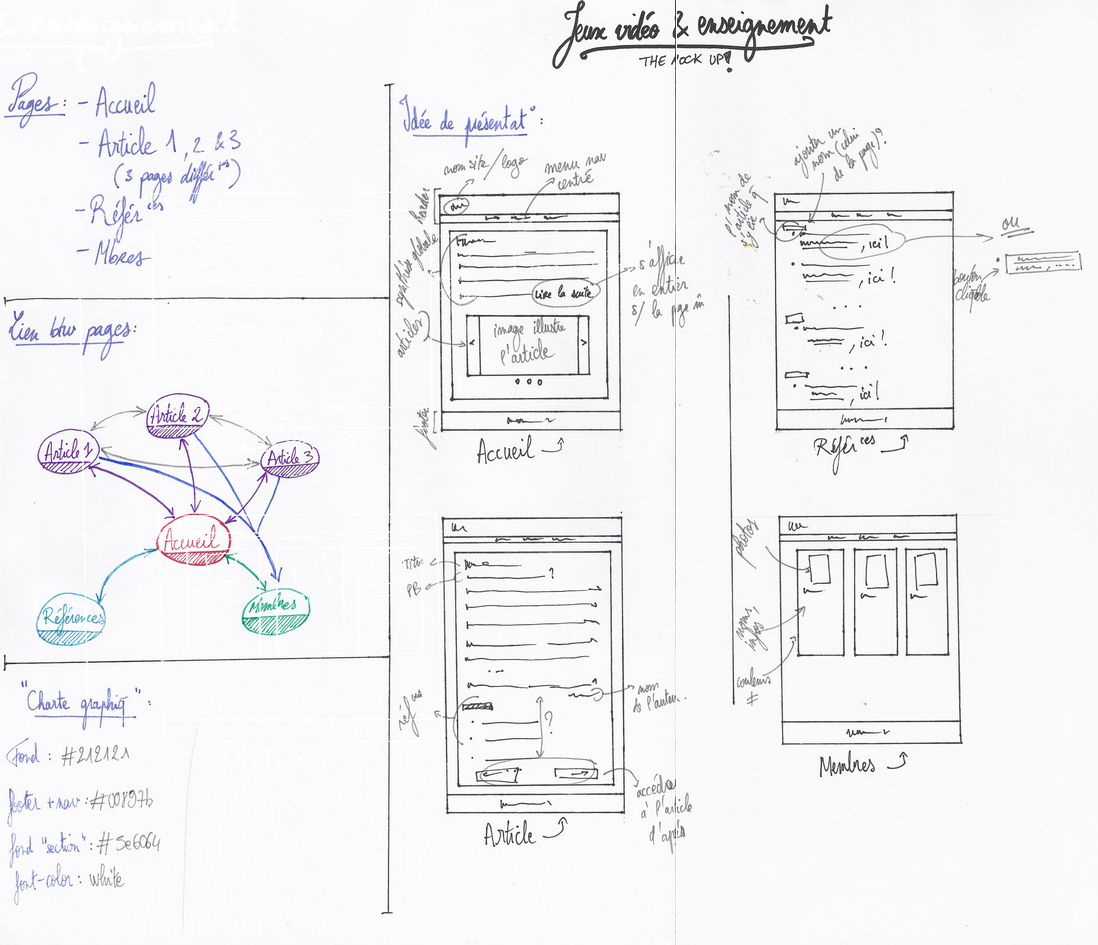 Jeux vidéo & enseignement
THE MOCK UP!
& enseignement
Pages : - Accueil
- Article 1, 2 & 3
(3 pages différ^tes)
- Référ^ces
- Mbres
Lien btw pages :
Article 2
Article 1
Article 3
Accueil
Références
Membres
"Charte graphiq" :
Fond : #212121
footer + nav : #00897b
fond "section" : #5e6064
font-color : white
Idée de présentat° :
nom site / logo
menu nav
centré
header
synthèse globale
articles
footer
Lire la suite
image illustre
l'article
< >
s'affiche
en entier
s/ la page
Accueil
ajouter un
nom (celui
de la page)?
nom de
article
, ici!
, ici!
...
, ici!
...
, ici!
ou
bouton
cliqble
Référ^ces
Titre
PB
?
...
nom
de l'auteur
réf^ces
?
accéder
à l'article
d'après
Article
photos
noms,
infos
couleurs
#
Membres